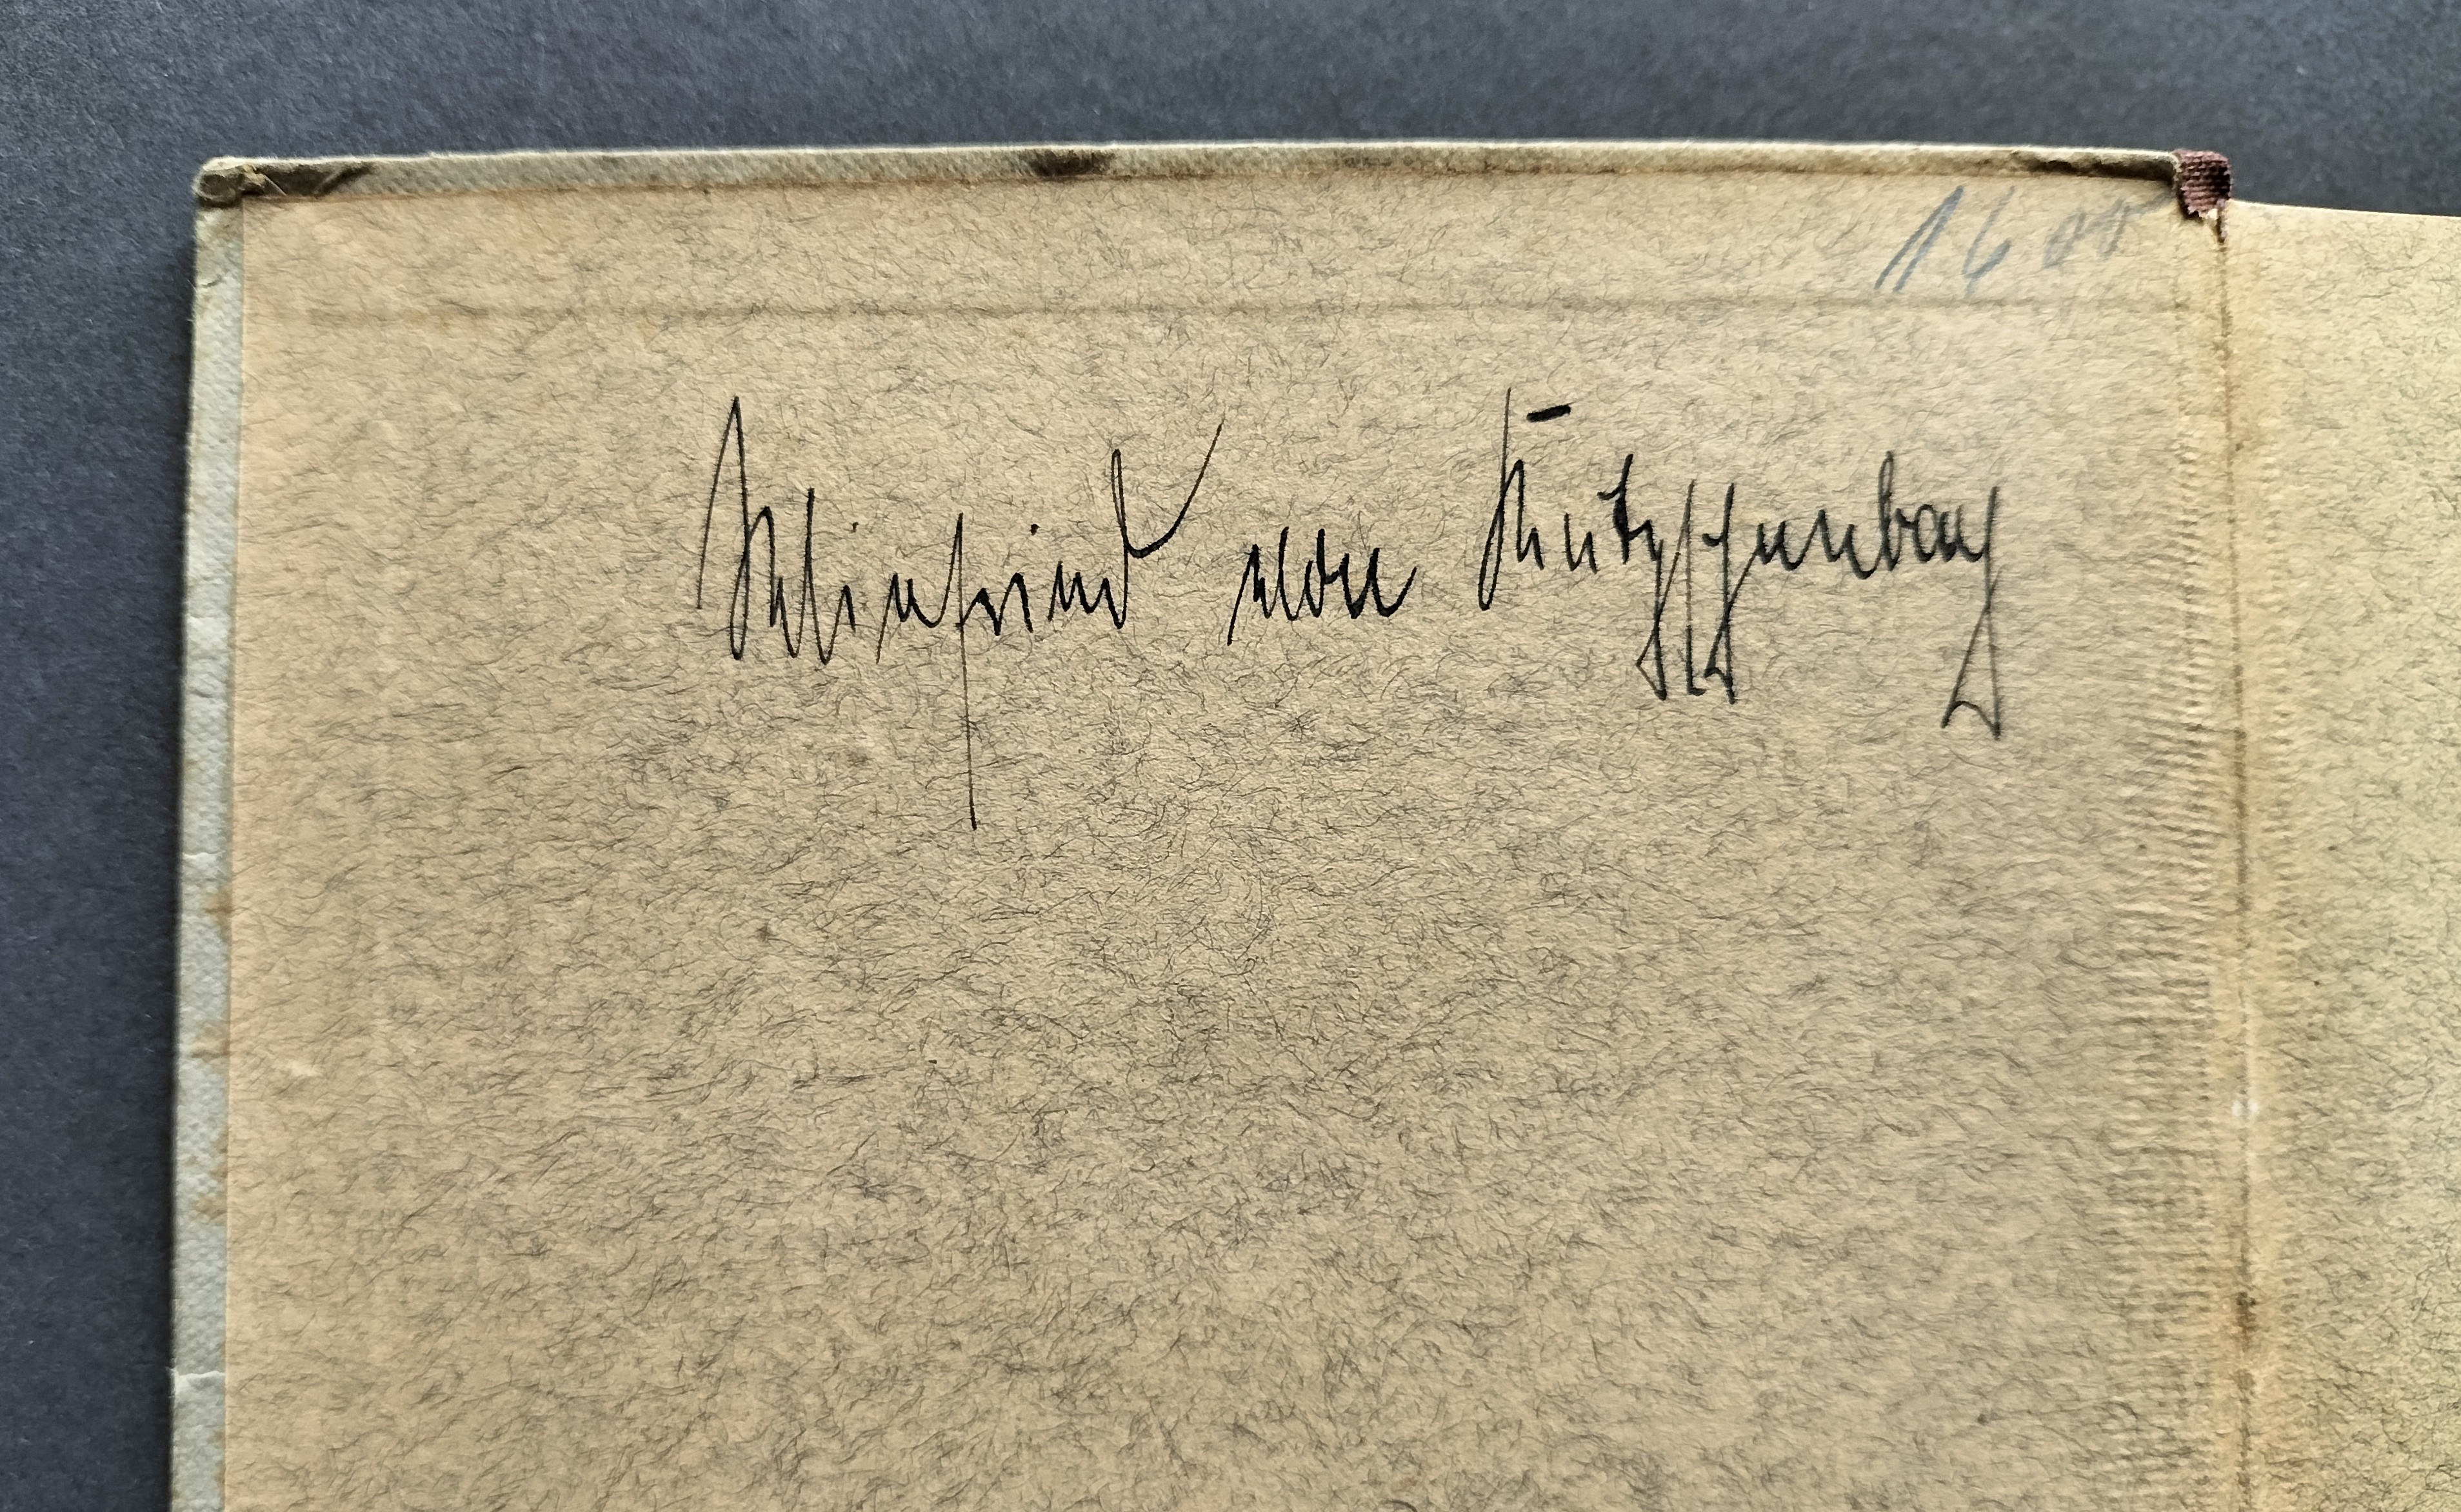 16 00
Winfried von Kutzschenbach